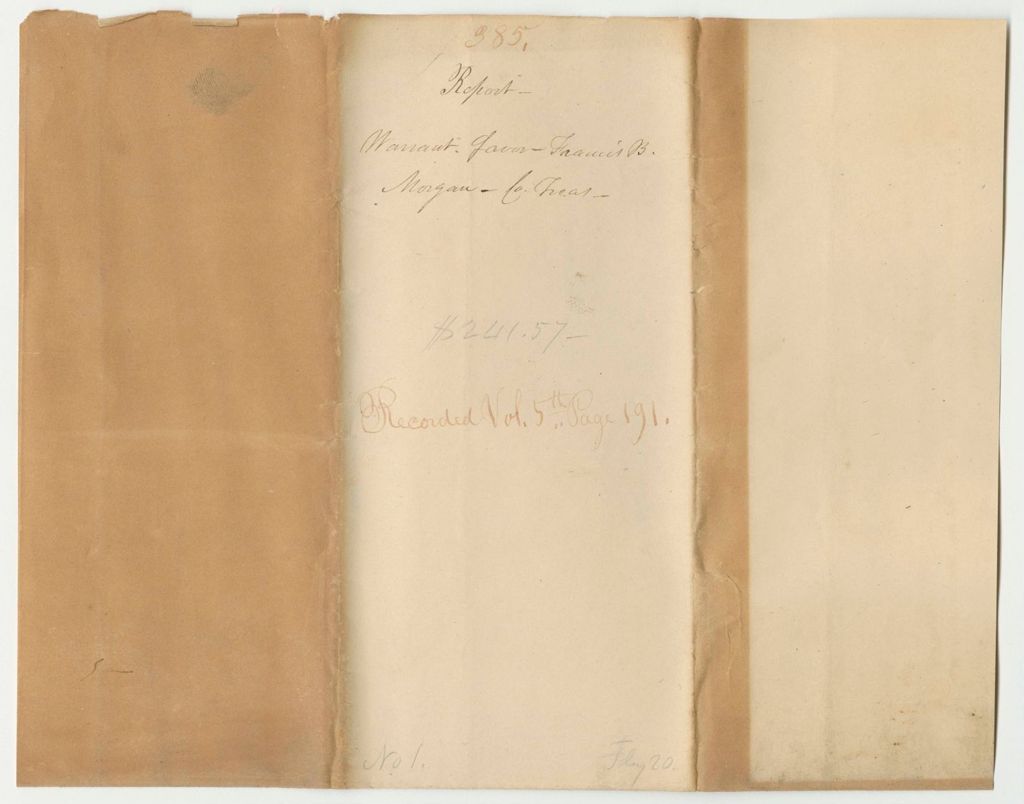 385.
Report-
Warrant. favor- Francis B.
Morgan - Co. Treas-
$241.57-
Recorded Vol. 5th. Page 191.
5-
No 1.